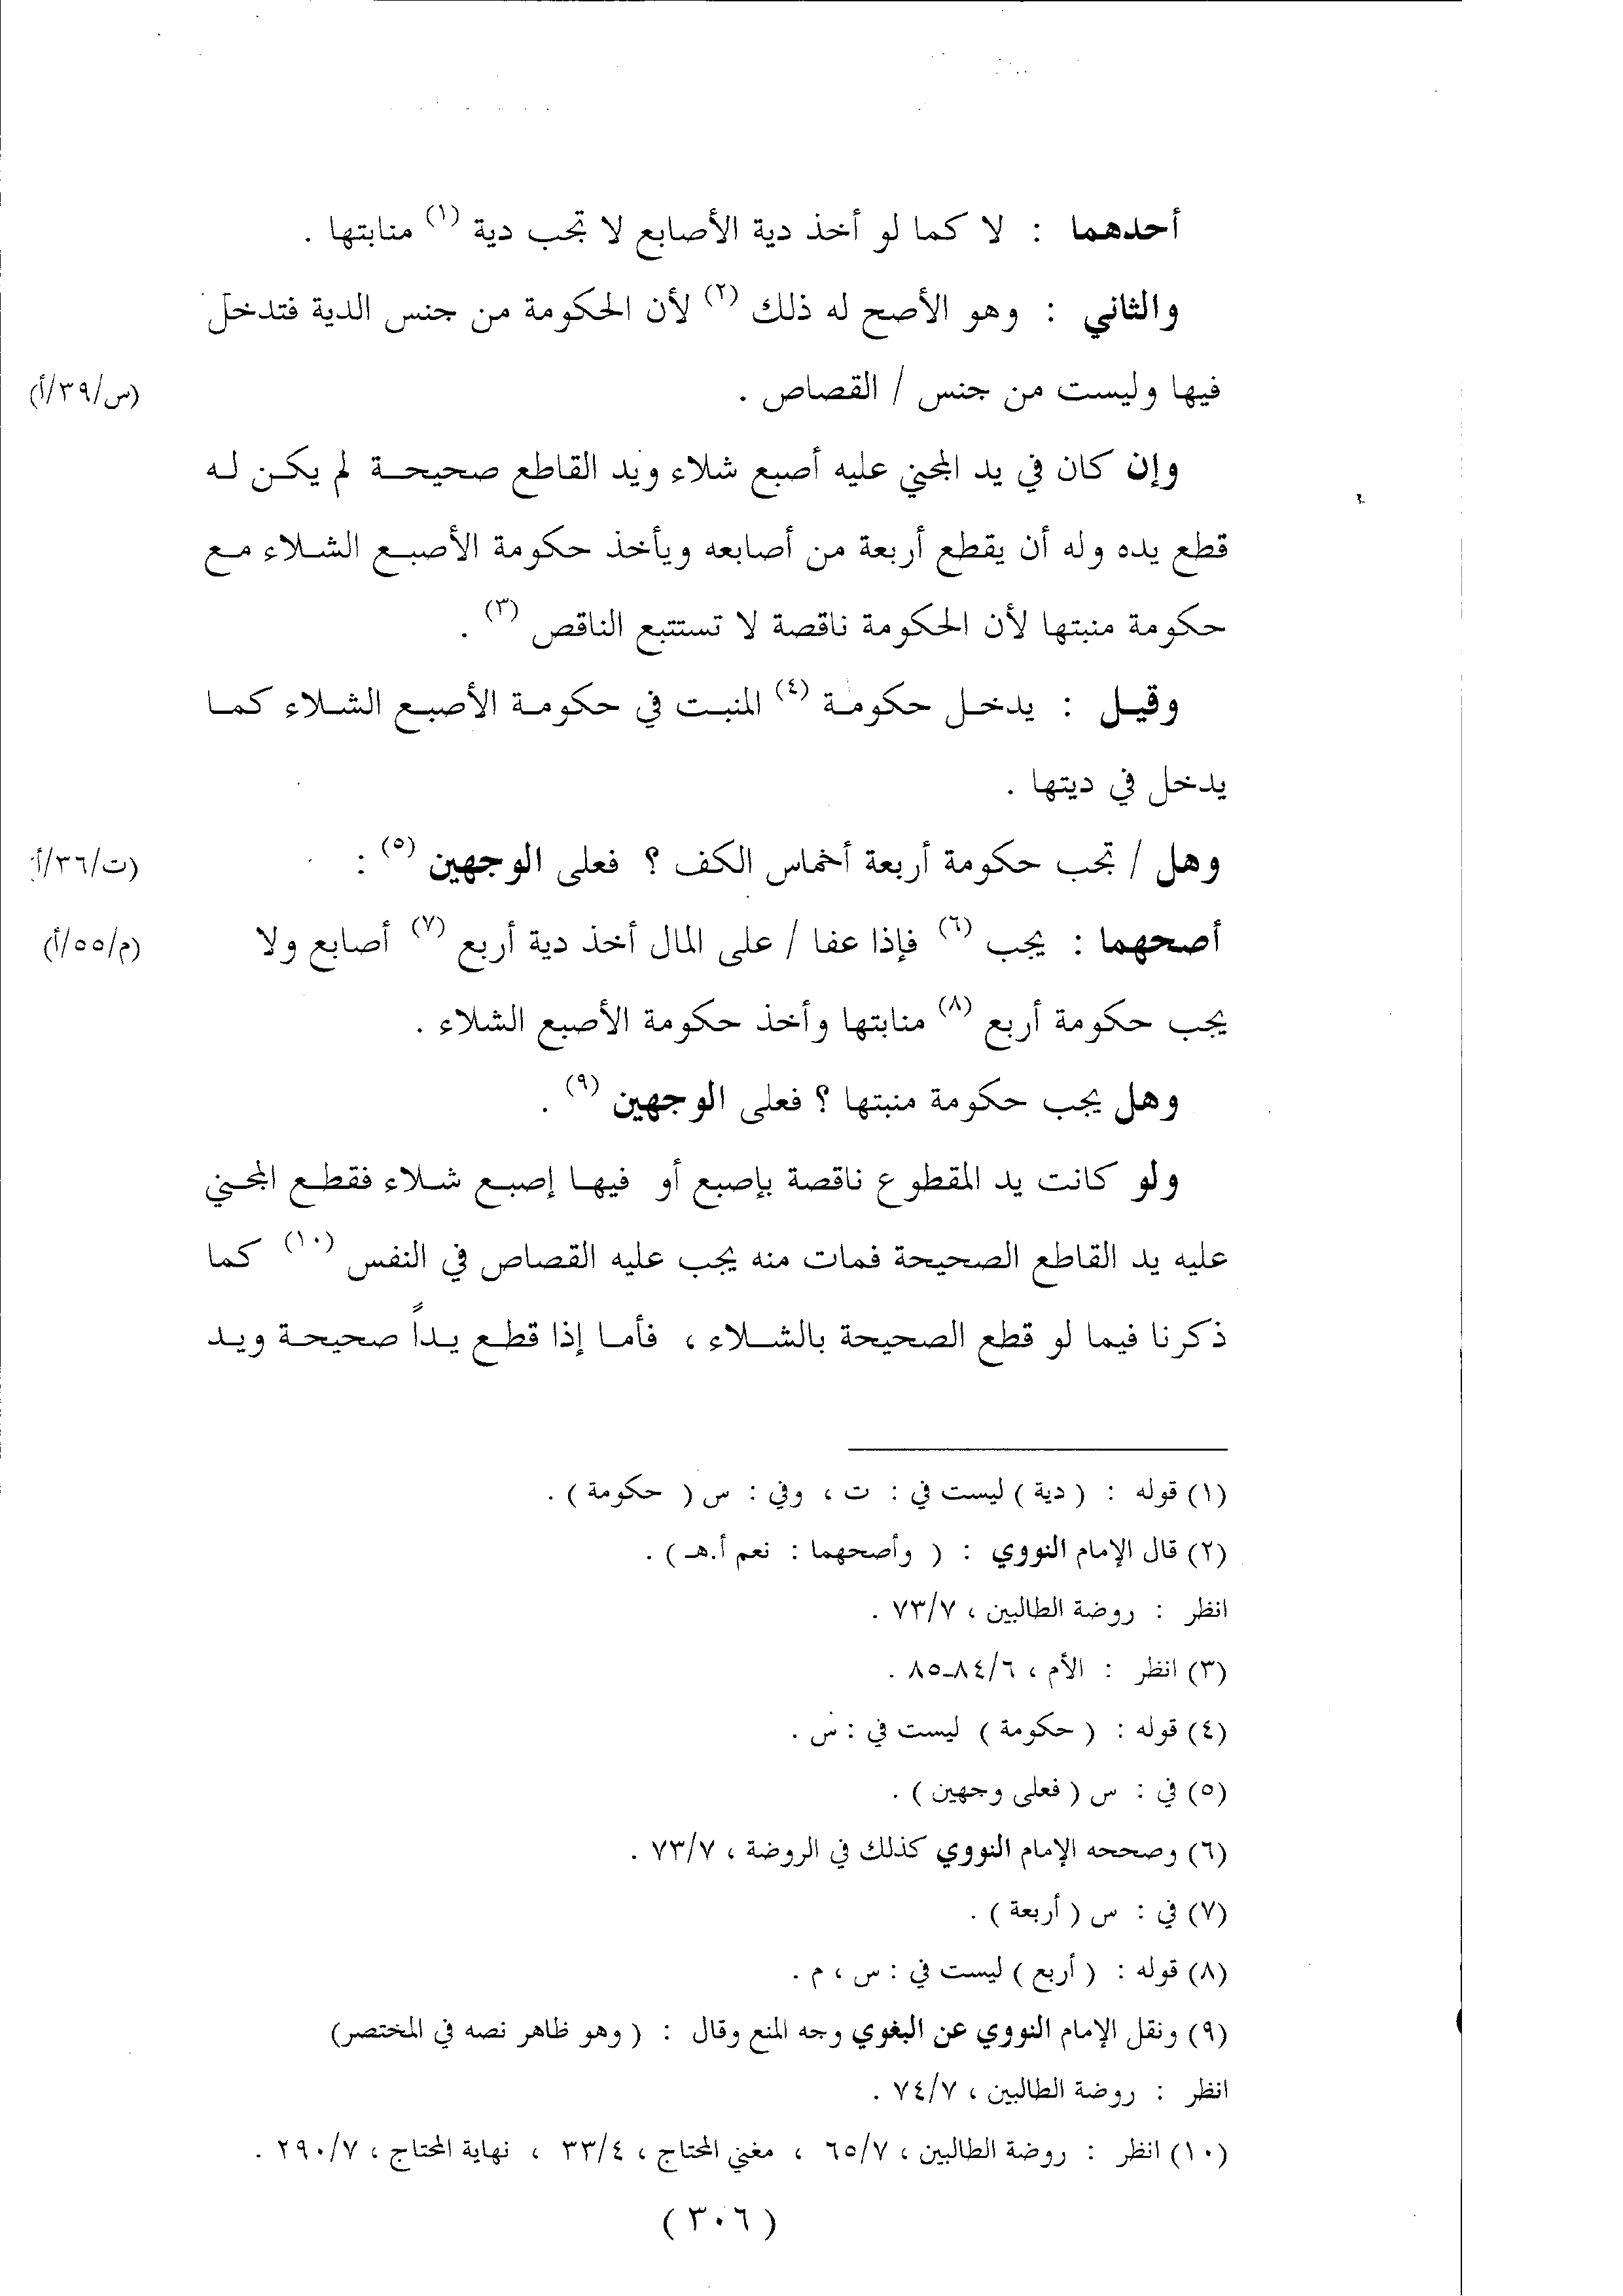 أحدهما : لا كما لو أخذ دية الأصابع لا تجب دية (١) منابتها .
والثاني : وهو الأصح له ذلك (٢) لأن الحكومة من جنس الدية فتدخل
فيها وليست من جنس / القصاص .
(س/٣٩/أ)
وإن كان في يد المجني عليه أصبع شلاء ويد القاطع صحيحة لم يكن له
قطع يده وله أن يقطع أربعة من أصابعه ويأخذ حكومة الأصبع الشلاء مع
حكومة منبتها لأن الحكومة ناقصة لا تستتبع الناقص (٣) .
وقيل : يدخل حكومة (٤) المنبت في حكومة الأصبع الشلاء كما
يدخل في ديتها .
وهل / تجب حكومة أربعة أخماس الكف ؟ فعلى الوجهين (٥) :
(ت/٣٦/أ)
أصحهما : يجب (٦) فإذا عفا / على المال أخذ دية أربع (٧) أصابع ولا
(م/٥٥/أ)
يجب حكومة أربع (٨) منابتها وأخذ حكومة الأصبع الشلاء .
وهل يجب حكومة منبتها ؟ فعلى الوجهين (٩) .
ولو كانت يد المقطوع ناقصة بإصبع أو فيها إصبع شلاء فقطع المجني
عليه يد القاطع الصحيحة فمات منه يجب عليه القصاص في النفس (١٠) كما
ذكرنا فيما لو قطع الصحيحة بالشلاء ، فأما إذا قطع يداً صحيحة ويد
(١) قوله : ( دية ) ليست في : ت ، وفي : س ( حكومة ) .
(٢) قال الإمام النووي : ( وأصحهما : نعم أ.هـ ) .
انظر : روضة الطالبين ، ٧٣/٧ .
(٣) انظر : الأم ، ٨٤/٦ـ٨٥ .
(٤) قوله : ( حكومة ) ليست في : س .
(٥) في : س ( فعلى وجهين ) .
(٦) وصححه الإمام النووي كذلك في الروضة ، ٧٣/٧ .
(٧) في : س ( أربعة ) .
(٨) قوله : ( أربع ) ليست في : س ، م .
(٩) ونقل الإمام النووي عن البغوي وجه المنع وقال : ( وهو ظاهر نصه في المختصر)
انظر : روضة الطالبين ، ٧٤/٧ .
(١٠) انظر : روضة الطالبين ، ٦٥/٧ ، مغني المحتاج ، ٣٣/٤ ، نهاية المحتاج ، ٢٩٠/٧ .
( ٣٠٦ )